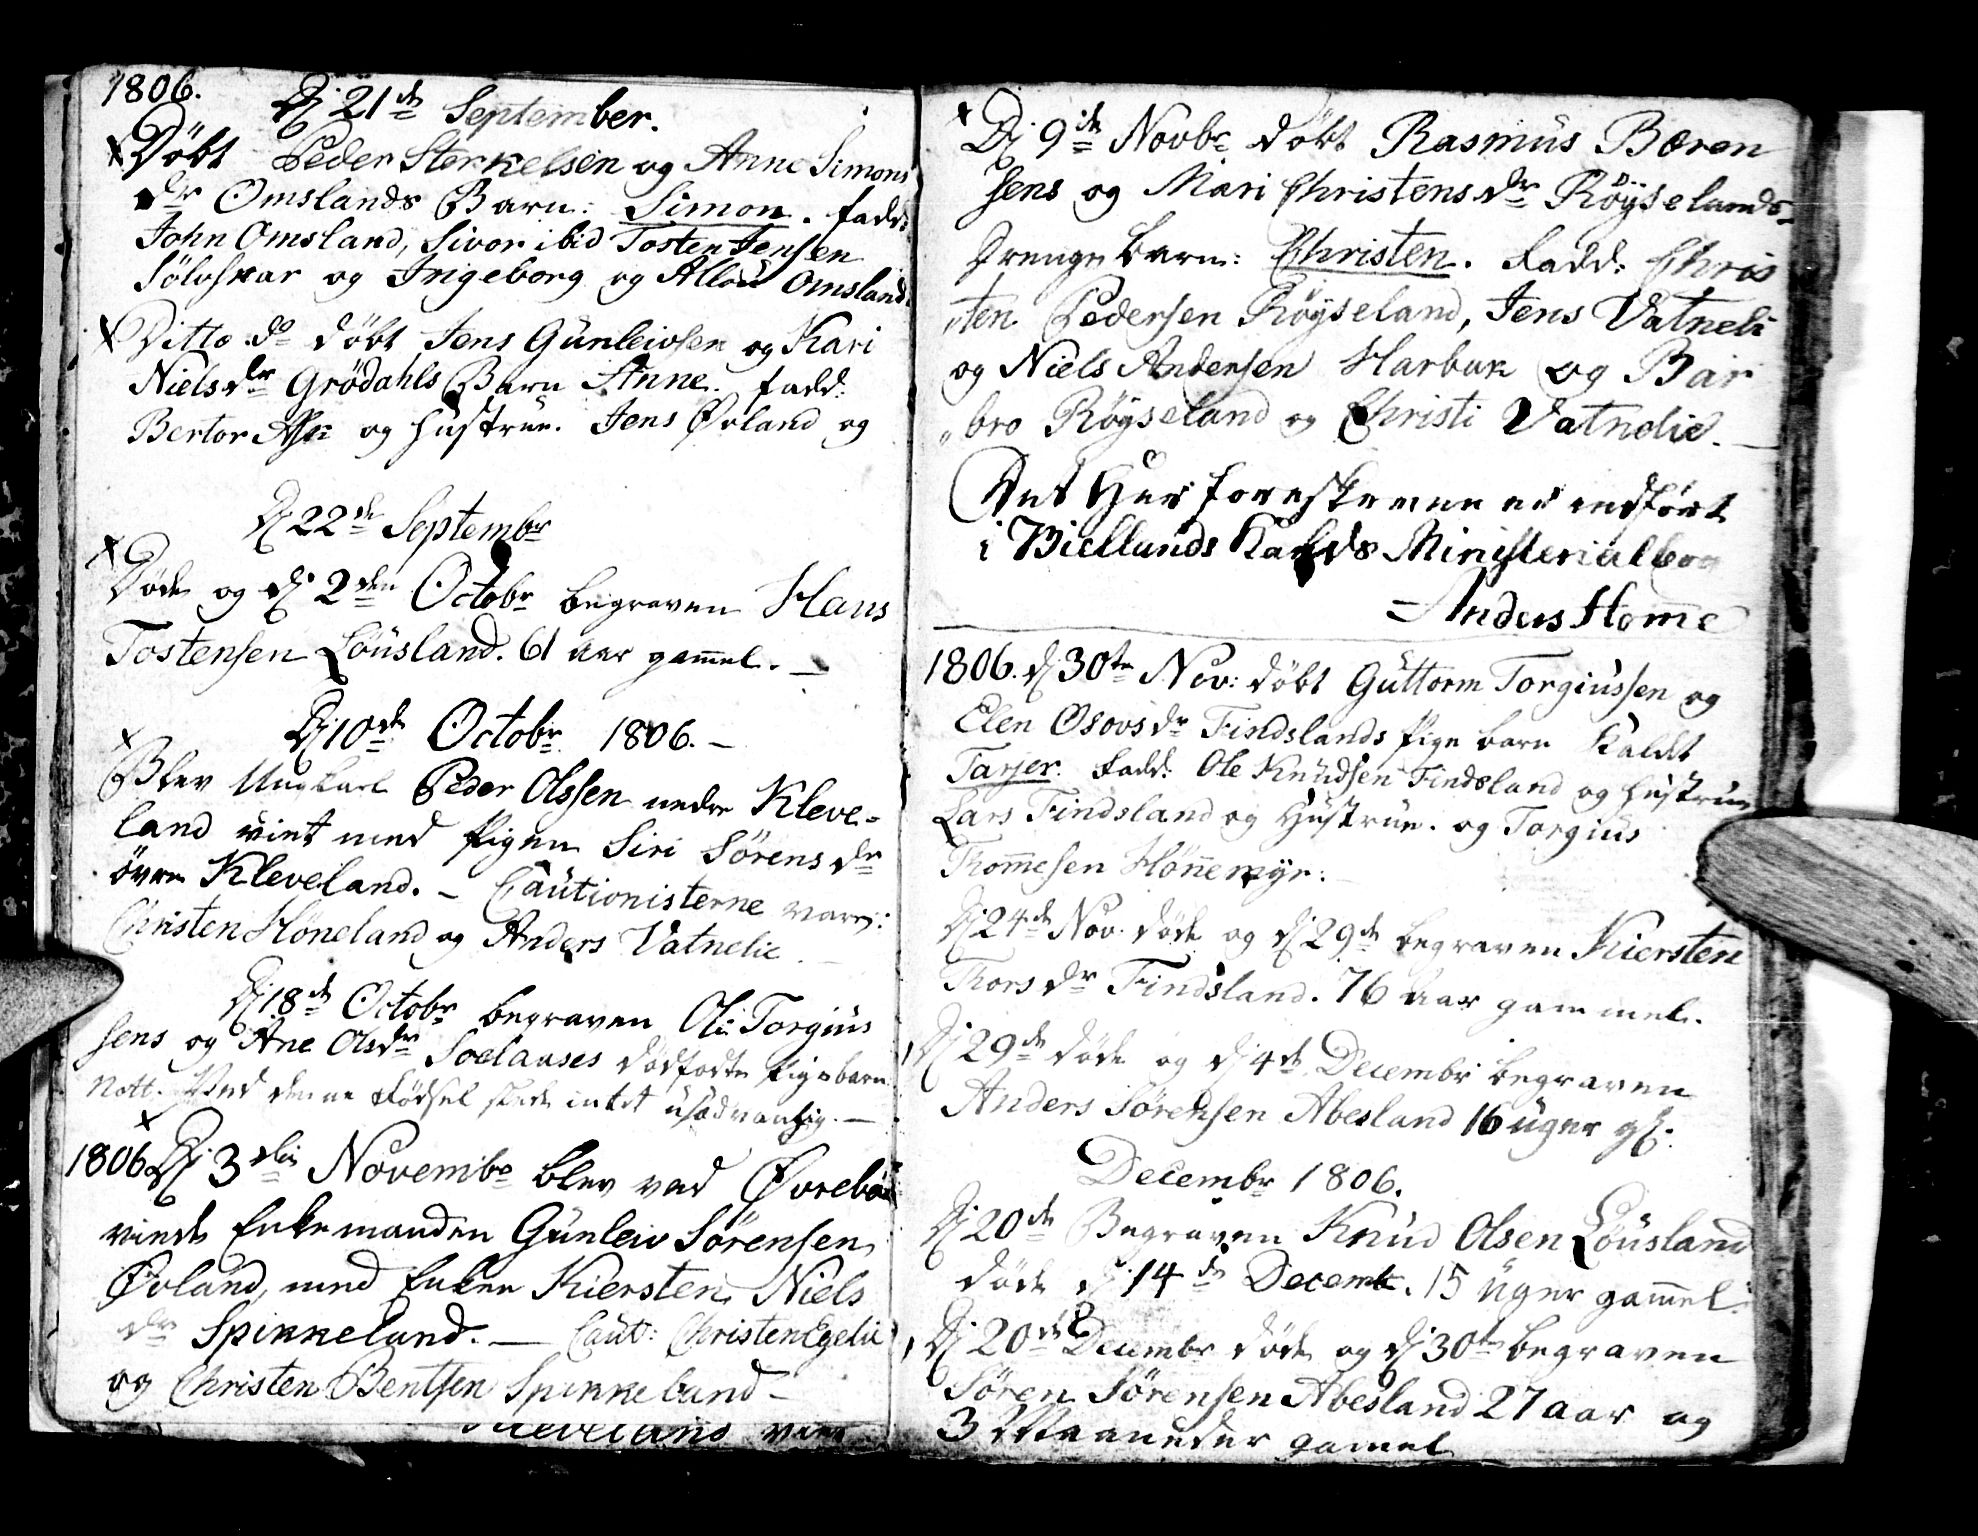 1806.
Dj 21de September.
Döbt Peder Sterkelsen og Anne Simons
dr Omslands Barn: Simon. fadd:
John Omsland, Sivor ibid Tosten Jensen
Sölvskar og Ingeborg og Allou Omsland
Ditto do döbt Jens Günleivsen og Kari
Nielsdr Grödahls Barn Anne. fadd:
Bertor Ask og hustrue. Jens Øvland og
Dj 22de Septembr
Döde og dj 2den Octobr begraven Hans
Tostensen Löusland. 61 aar gamel.
Dj 10de Octobr 1806.
Blev Ungkarl Peder Olssen nedre Kleve-
land viet med Pigen Siri Sörensdr
övre Kleveland. Cautionisterne vare:
Christen Höneland og Anders Vatnelie
Dj 18de Octobr begraven Ole Torgius
sens og Ane Olsdr Soelanses dödfödte Pigebarn
Nott. Ved denne Födsel skede intet usædvanlig.
1806 Dj 3die Novembr blev ved Øvrebö
viede Enkemanden Günleiv Sörensen
Øvland, med Enken Kiersten Niels
dr Spikkeland. Caut: Christen Egelie
og Christen Bentsen Spikkeland
Kleveland viet
Dj 9de Novbr döbt Rasmüs Bören
sens og Mari Christensdr Röyselands
Drenge barn: Christen. fadd: Chris
ten Pedersen Röyseland, Jens Vatneli
og Niels Andersen Harbak og Bar
bro Röyseland og Christi Vatnelie.
Det Her foreskrevne er indfört
i Biellands Kalds Ministerialbog
Anders Home
1806. dj 30te Nov: döbt Güttorm Torgiussen og
Elen Osovsdr Findslands Pige barn kaldt
Tarjer. fadd: Ole Knudsen Findsland og hustrue
Lars Findsland og Hustrue. og Torgius
Thomesen Hönemyr.
Dj 24de Nov. döde og dj 29de begraven Kiersten
Thorsdr Findsland. 76 aar gammel.
Dj 29de döde og dj 4de Decembr begraven
Anders Sörensen Abesland 16 uger gl.
Decembr 1806.
Dj 20de Begraven Knud Olsen Löusland
döde dj 14de Decemb. 15 Uger gamel.
Dj 20de Decembr döde og dj 30te begraven
Sören Sörensen Abesland 27 aar og
3 Maaneder gamel